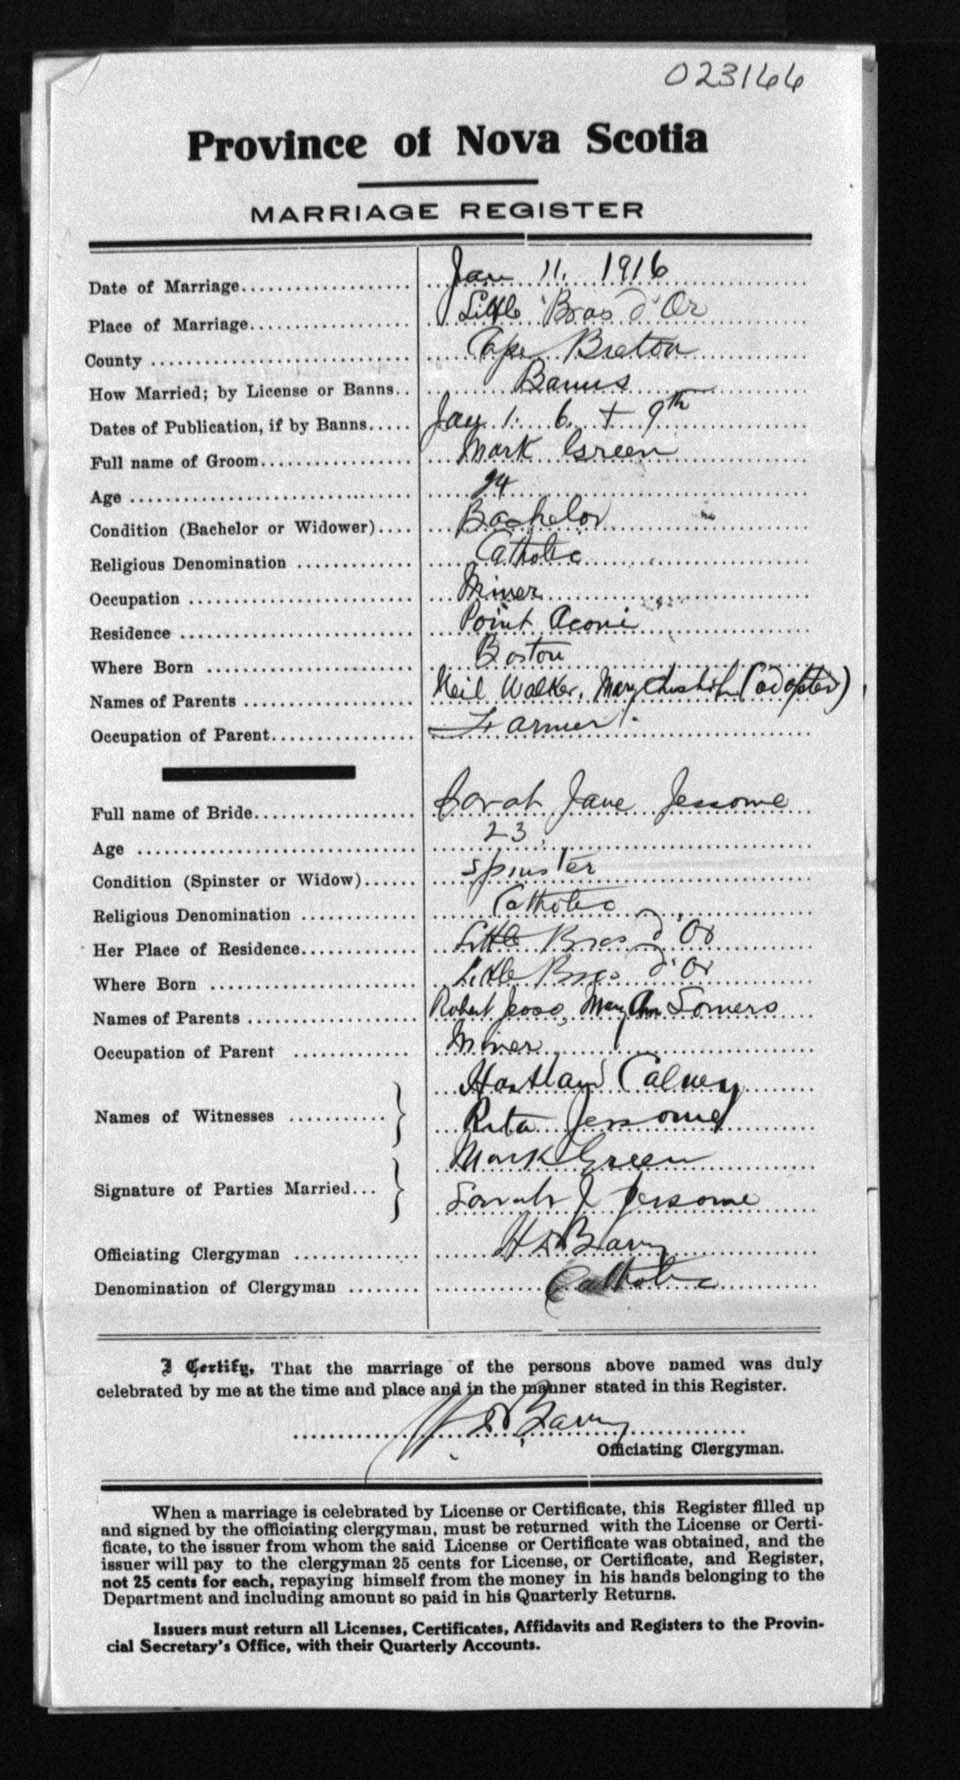 023166
Province of Nova Scotia
MARRIAGE REGISTER
Date of Marriage Jan 11. 1916
Place of Marriage Little Bras d'Or
County Cape Breton
How Married; by License or Banns Banns
Dates of Publication, if by Banns Jany. 1. 6. + 9th
Full name of Groom Mark Green
Age 24
Condition (Bachelor or Widower) Bachelor
Religious Denomination Catholic
Occupation Miner
Residence Point Aconi
Where Born Boston
Names of Parents Neil Walker, Mary (adopted)
Occupation of Parent Farmer
Full name of Bride Sarah Jane Jessome
Age 23
Condition (Spinster or Widow) Spinster
Religious Denomination Catholic
Her Place of Residence Little Bras d'Or
Where Born Little Bras d'Or
Names of Parents Robert Jesso, Mary Ann Somers
Occupation of Parent Miner
Names of Witnesses
Rita Jessome
Signature of Parties Married Mark Green
Sarah J Jessome
Officiating Clergyman H D Barry
Denomination of Clergyman Catholic
I Certify, That the marriage of the persons above named was duly
celebrated by me at the time and place and in the manner stated in this Register.
H D Barry
Officiating Clergyman.
When a marriage is celebrated by License or Certificate, this Register filled up
and signed by the officiating clergyman, must be returned with the License or Certi-
ficate, to the issuer from whom the said License or Certificate was obtained, and the
issuer will pay to the clergyman 25 cents for License, or Certificate, and Register,
not 25 cents for each, repaying himself from the money in his hands belonging to the
Department and including amount so paid in his Quarterly Returns.
Issuers must return all Licenses, Certificates, Affidavits and Registers to the Provin-
cial Secretary's Office, with their Quarterly Accounts.